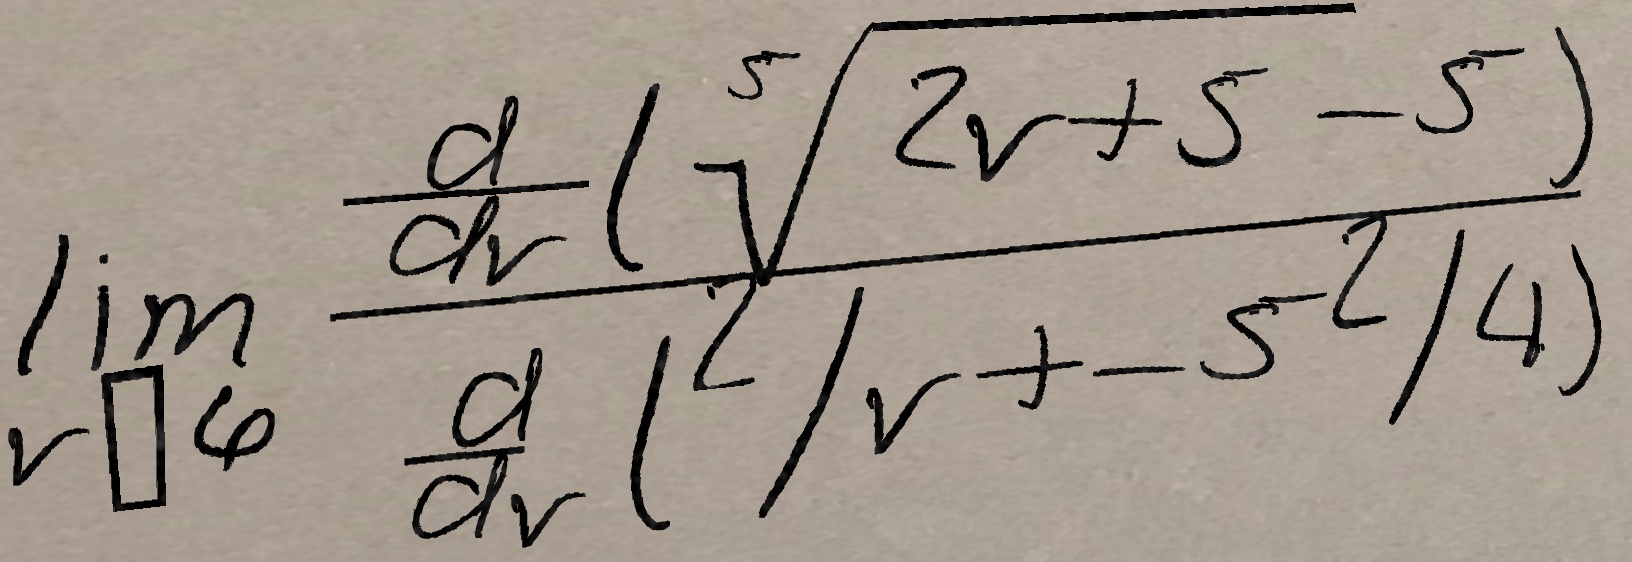 \lim_{v □ φ} \frac{\frac{d}{dv}(\sqrt[5]{2v+5-5})}{\frac{d}{dv}(2/v+-5^2/4)}